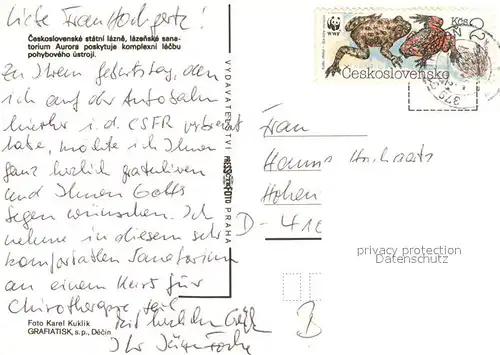 Liebe Frau Hochgertz!
Československé státní lázně, lázeňské sana-
torium Aurora poskytuje komplexní léčbu
pohybového ústrojí.
Zu Ihrem Geburtstag, den
ich auf der Autobahn
hierher i. d. CSFR verbracht
habe, möchte ich Ihnen
ganz herzlich gratulieren
und Ihnen Gottes
Segen wünschen. Ich
nehme in diesem sehr
komfortablen Sanatorium
an einem Kurs für
Chirotherapie teil
Mit herzlichen Grüßen
Ihr
Foto Karel Kuklík
GRAFIATISK, s.p., Děčín
VYDAVATELSTVÍ
PRAHA
WWF
Kčs
Československo
Frau
Hanna
Hohen
D-
privacy protection
Datenschutz